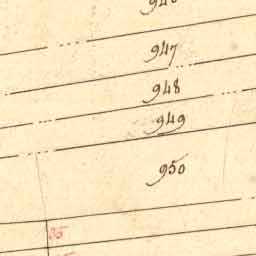 947
948
949
950
35